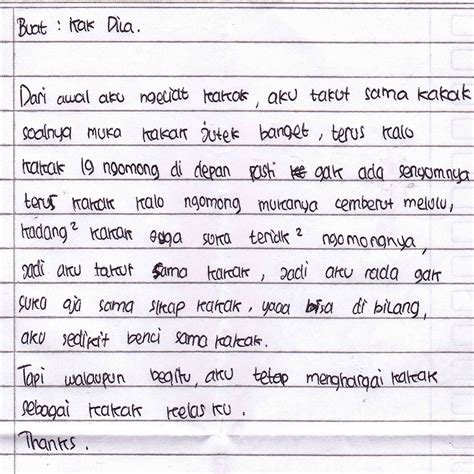 Buat : Kak Dila.
Dari awal aku ngeliat kakak, aku takut sama kakak
soalnya muka kakak jutek banget, terus kalo
kakak lg ngomong di depan pasti gak ada senyumnya
terus kakak kalo ngomong mukanya cemberut melulu,
kadang² kakak juga suka teriak² ngomongnya,
jadi aku takut sama kakak, jadi aku rada gak
suka aja sama sikap kakak, yaaa bisa di bilang,
aku sedikit benci sama kakak.
Tapi walaupun begitu, aku tetep menghargai kakak
sebagai kakak kelas ku.
Thanks.